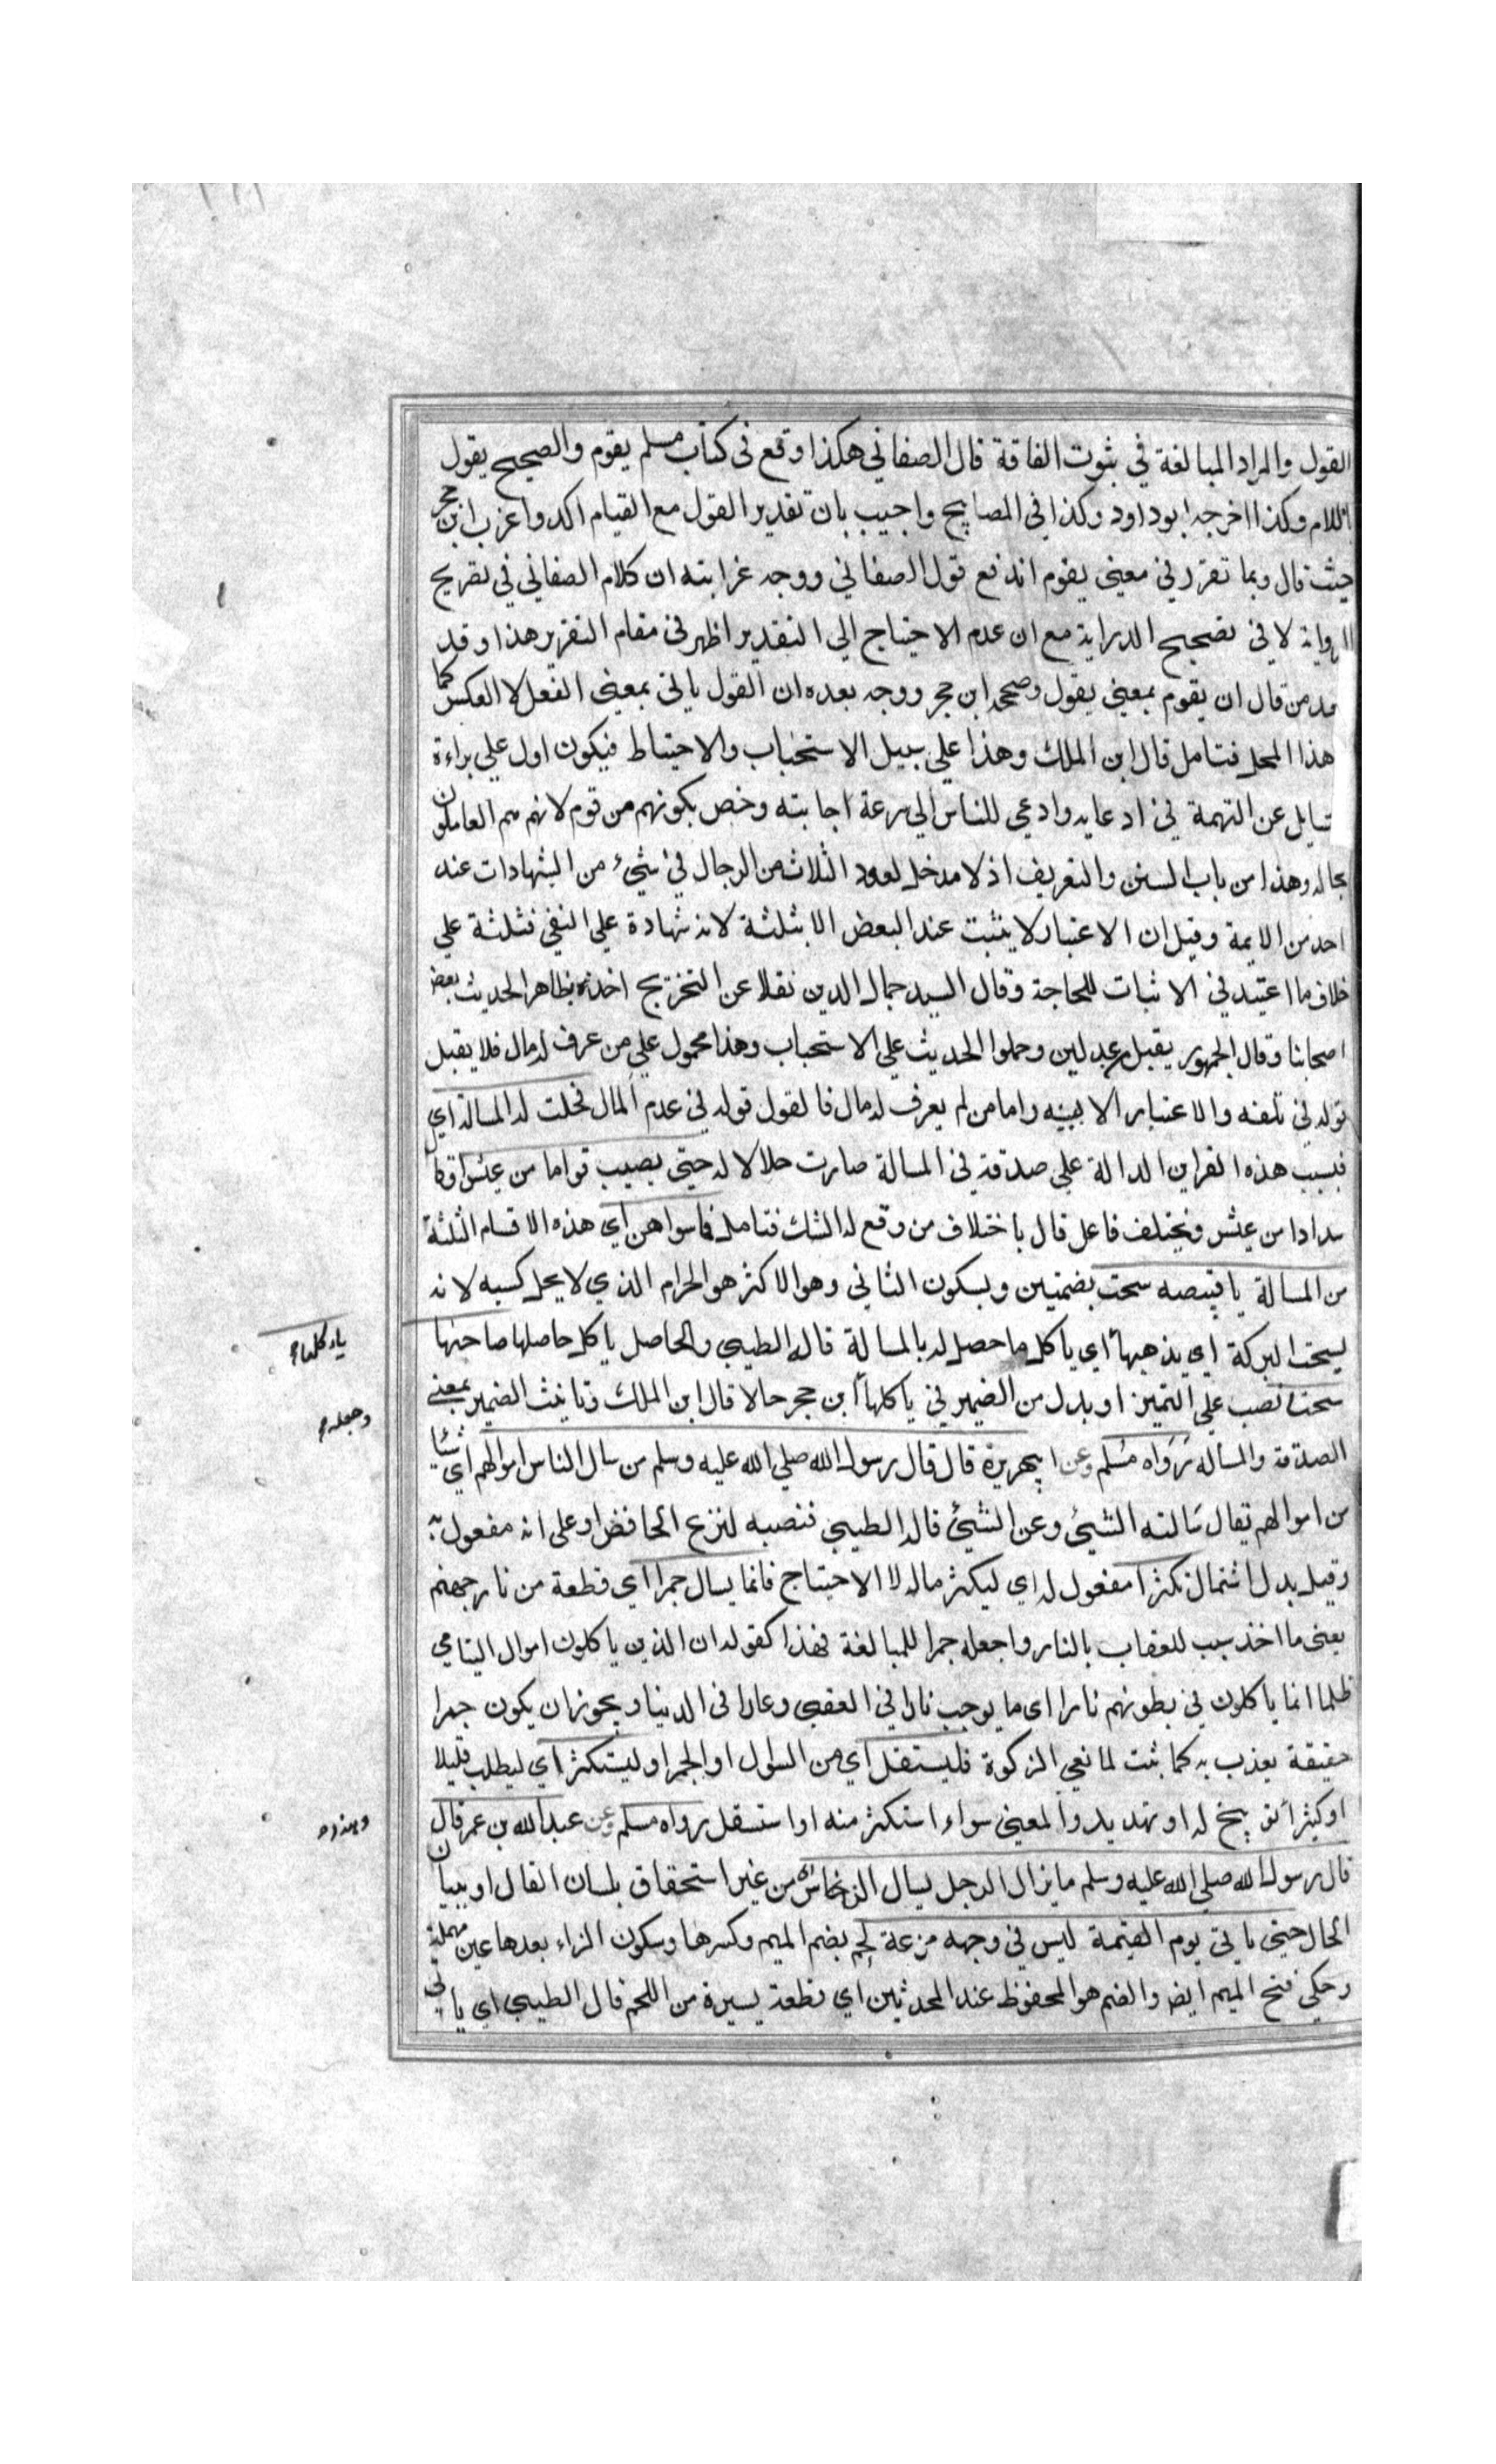 القول والمراد المبالغة في ثبوت الفاقة قال الصغاني هكذا وقع في كتاب مسلم يقوم والصحيح يقول
باللام وكذا اخرجه ابوداود وكذا في المصابيح واجيب بان تقدير القول مع القيام اكد واغرب ابن حجر
حيث قال وبما تقرر في معنى يقوم اندفع قول الصغاني ووجه غرابته ان كلام الصغاني في تصريح
الرواية لا في تصحيح الدراية مع ان عدم الاحتياج الي التقدير اظهر في مقام التقرير هذا وقد
من قال ان يقوم بمعنى يقول وصححه ابن حجر ووجه بعده ان القول ياتي بمعنى الفعل لا العكس كما
هذا المحل فتامل قال ابن الملك وهذا علي سبيل الاستحباب والاحتياط فيكون اول علي براءة
عن التهمة في ادعايه وادعي للناس الي سرعة اجابته وخص بكونهم من قوم لانهم هم العالمون
بحاله وهذا من باب السنن والتعريف اذ لا مدخل لعدد الثلاث من الرجال في شيء من الشهادات عند
احد من الايمة وقيل ان الاعتبار لا يثبت عند البعض الا بثلثة لانه شهادة علي النفي فثلثة علي
خلاف ما اعتيد في الاثبات للحاجة وقال السيد جمال الدين نقلا عن التخريج اخذ بظاهر الحديث بعض
اصحابنا وقال الجمهور يقبل من عدلين وحملوا الحديث علي الاستحباب وهذا محمول علي من عرف له مال فلا يقبل
قوله في تلفه والاعتبار الا ببينه واما من لم يعرف له مال فالقول قوله في عدم المال فحلت له المسالة اي
فبسبب هذه القراين الدالة علي صدقه في المسالة صارت حلالا له حتي يصيب قواما من عيش او قال
سدادا من عيش ويختلف فاعل قال باختلاف من وقع له الشك فتامل فما سواهن اي هذه الاقسام الثلثة
من المسالة يا قبيصه سحت بضمتين وبسكون الثاني وهو الاكثر هو الحرام الذي لا يحل كسبه لانه
يسحت البركة اي يذهبها اي ياكل ما حصل له بالمسالة قاله الطيبي والحاصل ياكل حاصلها صاحبها
سحتا نصب علي التميز او بدل من الضمير في ياكلها ابن حجر حالا قال ابن الملك وتانيث الضمير بمعنى
الصدقة والمساله رواه مسلم وعن ابي هريرة قال قال رسول الله صلي الله عليه وسلم من سال الناس اموالهم اي شيئا
من اموالهم يقال سالته الشيئ وعن الشيئ قاله الطيبي فنصبه لنزع الخافض او على انه مفعول به
وقيل بدل اشتمال تكثرا مفعول له اي ليكثر ماله لا الاحتياج فانما يسال جمرا اي قطعة من نار جهنم
يعني ما اخذ سبب للعقاب بالنار واجعله جمرا للمبالغة فهذا كقوله ان الذين ياكلون اموال اليتامي
ظلما انما ياكلون في بطونهم نارا اي ما يوجب نارا في العقبي وعارا في الدنيا ويجوز ان يكون جمرا
حقيقة يعذب به كما ثبت لمانعي الزكوة فليستقل اي من السوال او الجمر او ليستكثر اي ليطلب قليلا
او كثيرا توبيخ له او تهديد والمعنى سواء استكثر منه او استقل رواه مسلم وعن عبد الله بن عمر قال
قال رسول الله صلي الله عليه وسلم ما يزال الرجل يسال الناس من غير استحقاق بلسان القال او ببيان
الحال حتي ياتي يوم القيمة ليس في وجهه مزعة لحم بضم الميم وكسرها وسكون الزاء بعدها عين مهملة
وحكي فتح الميم ايض والضم هو المحفوظ عند المحدثين اي قطعة يسيرة من اللحم قال الطيبي اي ياتي
ياكلها
وجعله